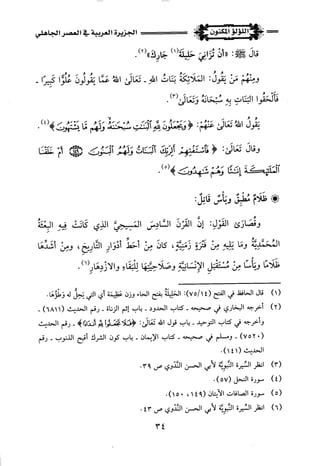 اللؤلؤ المكنون
الجزيرة العربية في العصر الجاهلي
قالَ ﷺ: «أنْ تُزَانِيَ حَلِيلَةَ(١) جَارِكَ»(٢).
ومِنْهُم مَنْ يَقُولُ: المَلائِكَةُ بَنَاتُ اللهِ ـ تَعَالَى اللهُ عَمَّا يَقُولُونَ عُلُوًّا كَبِيرًا ـ
فَأَلْحَقُوا البَنَاتِ بِهِ سُبْحَانَهُ وتَعَالَى(٣).
يَقُولُ اللهُ تَعَالَى عَنْهُمْ: ﴿وَيَجْعَلُونَ لِلَّهِ الْبَنَاتِ سُبْحَانَهُ وَلَهُم مَّا يَشْتَهُونَ﴾(٤).
وقَالَ تَعَالَى: ﴿فَاسْتَفْتِهِمْ أَلِرَبِّكَ الْبَنَاتُ وَلَهُمُ الْبَنُونَ أَمْ خَلَقْنَا
الْمَلَائِكَةَ إِنَاثًا وَهُمْ شَاهِدُونَ﴾(٥).
* ظَلَامٌ مُطْبِقٌ ويَأْسٌ قَاتِلٌ:
وقُصَارَى القَوْلِ: إنَّ القَرْنَ السَّادِسَ المَسِيحِيَّ الذِي كَانَتْ فِيهِ البِعْثَةُ
المُحَمَّدِيَّةُ ومَا يَلِيهِ مِنْ فَتْرَةٍ زَمَنِيَّةٍ، كَانَ مِنْ أحَطِّ أدْوَارِ التَّارِيخِ، ومِنْ أشَدِّهَا
ظَلَامًا ويَأْسًا مِنْ مُسْتَقْبَلِ الإنْسَانِيَّةِ وصَلَاحِيَّتِهَا لِلْبَقَاءِ والازْدِهَارِ(٦).
(١) قال الحافظ في الفتح (٧٥/١٤): الحَلِيلَةُ بفتح الحاء وزن عظيمة أي التي يَحِل له وَطْؤُهَا.
(٢) أخرجه البخاري في صحيحه ـ كتاب الحدود ـ باب إثم الزناة ـ رقم الحديث (٦٨١١) ـ
وأخرجه في كتاب التوحيد ـ باب قول الله تعالى: ﴿فَلَا تَجْعَلُوا لِلَّهِ أَندَادًا﴾ ـ رقم الحديث
(٧٥٢٠) ـ ومسلم في صحيحه ـ كتاب الإيمان ـ باب كون الشرك أقبح الذنوب ـ رقم
الحديث (١٤١)
(٣) انظر السِّيرة النَّبوِيَّة لأبي الحسن النَّدْوِي ص ٣٩.
(٤) سورة النحل (٥٧).
(٥) سورة الصافات الآيتان (١٤٩، ١٥٠).
(٦) انظر السِّيرة النَّبوِيَّة لأبي الحسن النَّدْوِي ص ٤٣.
٣٤